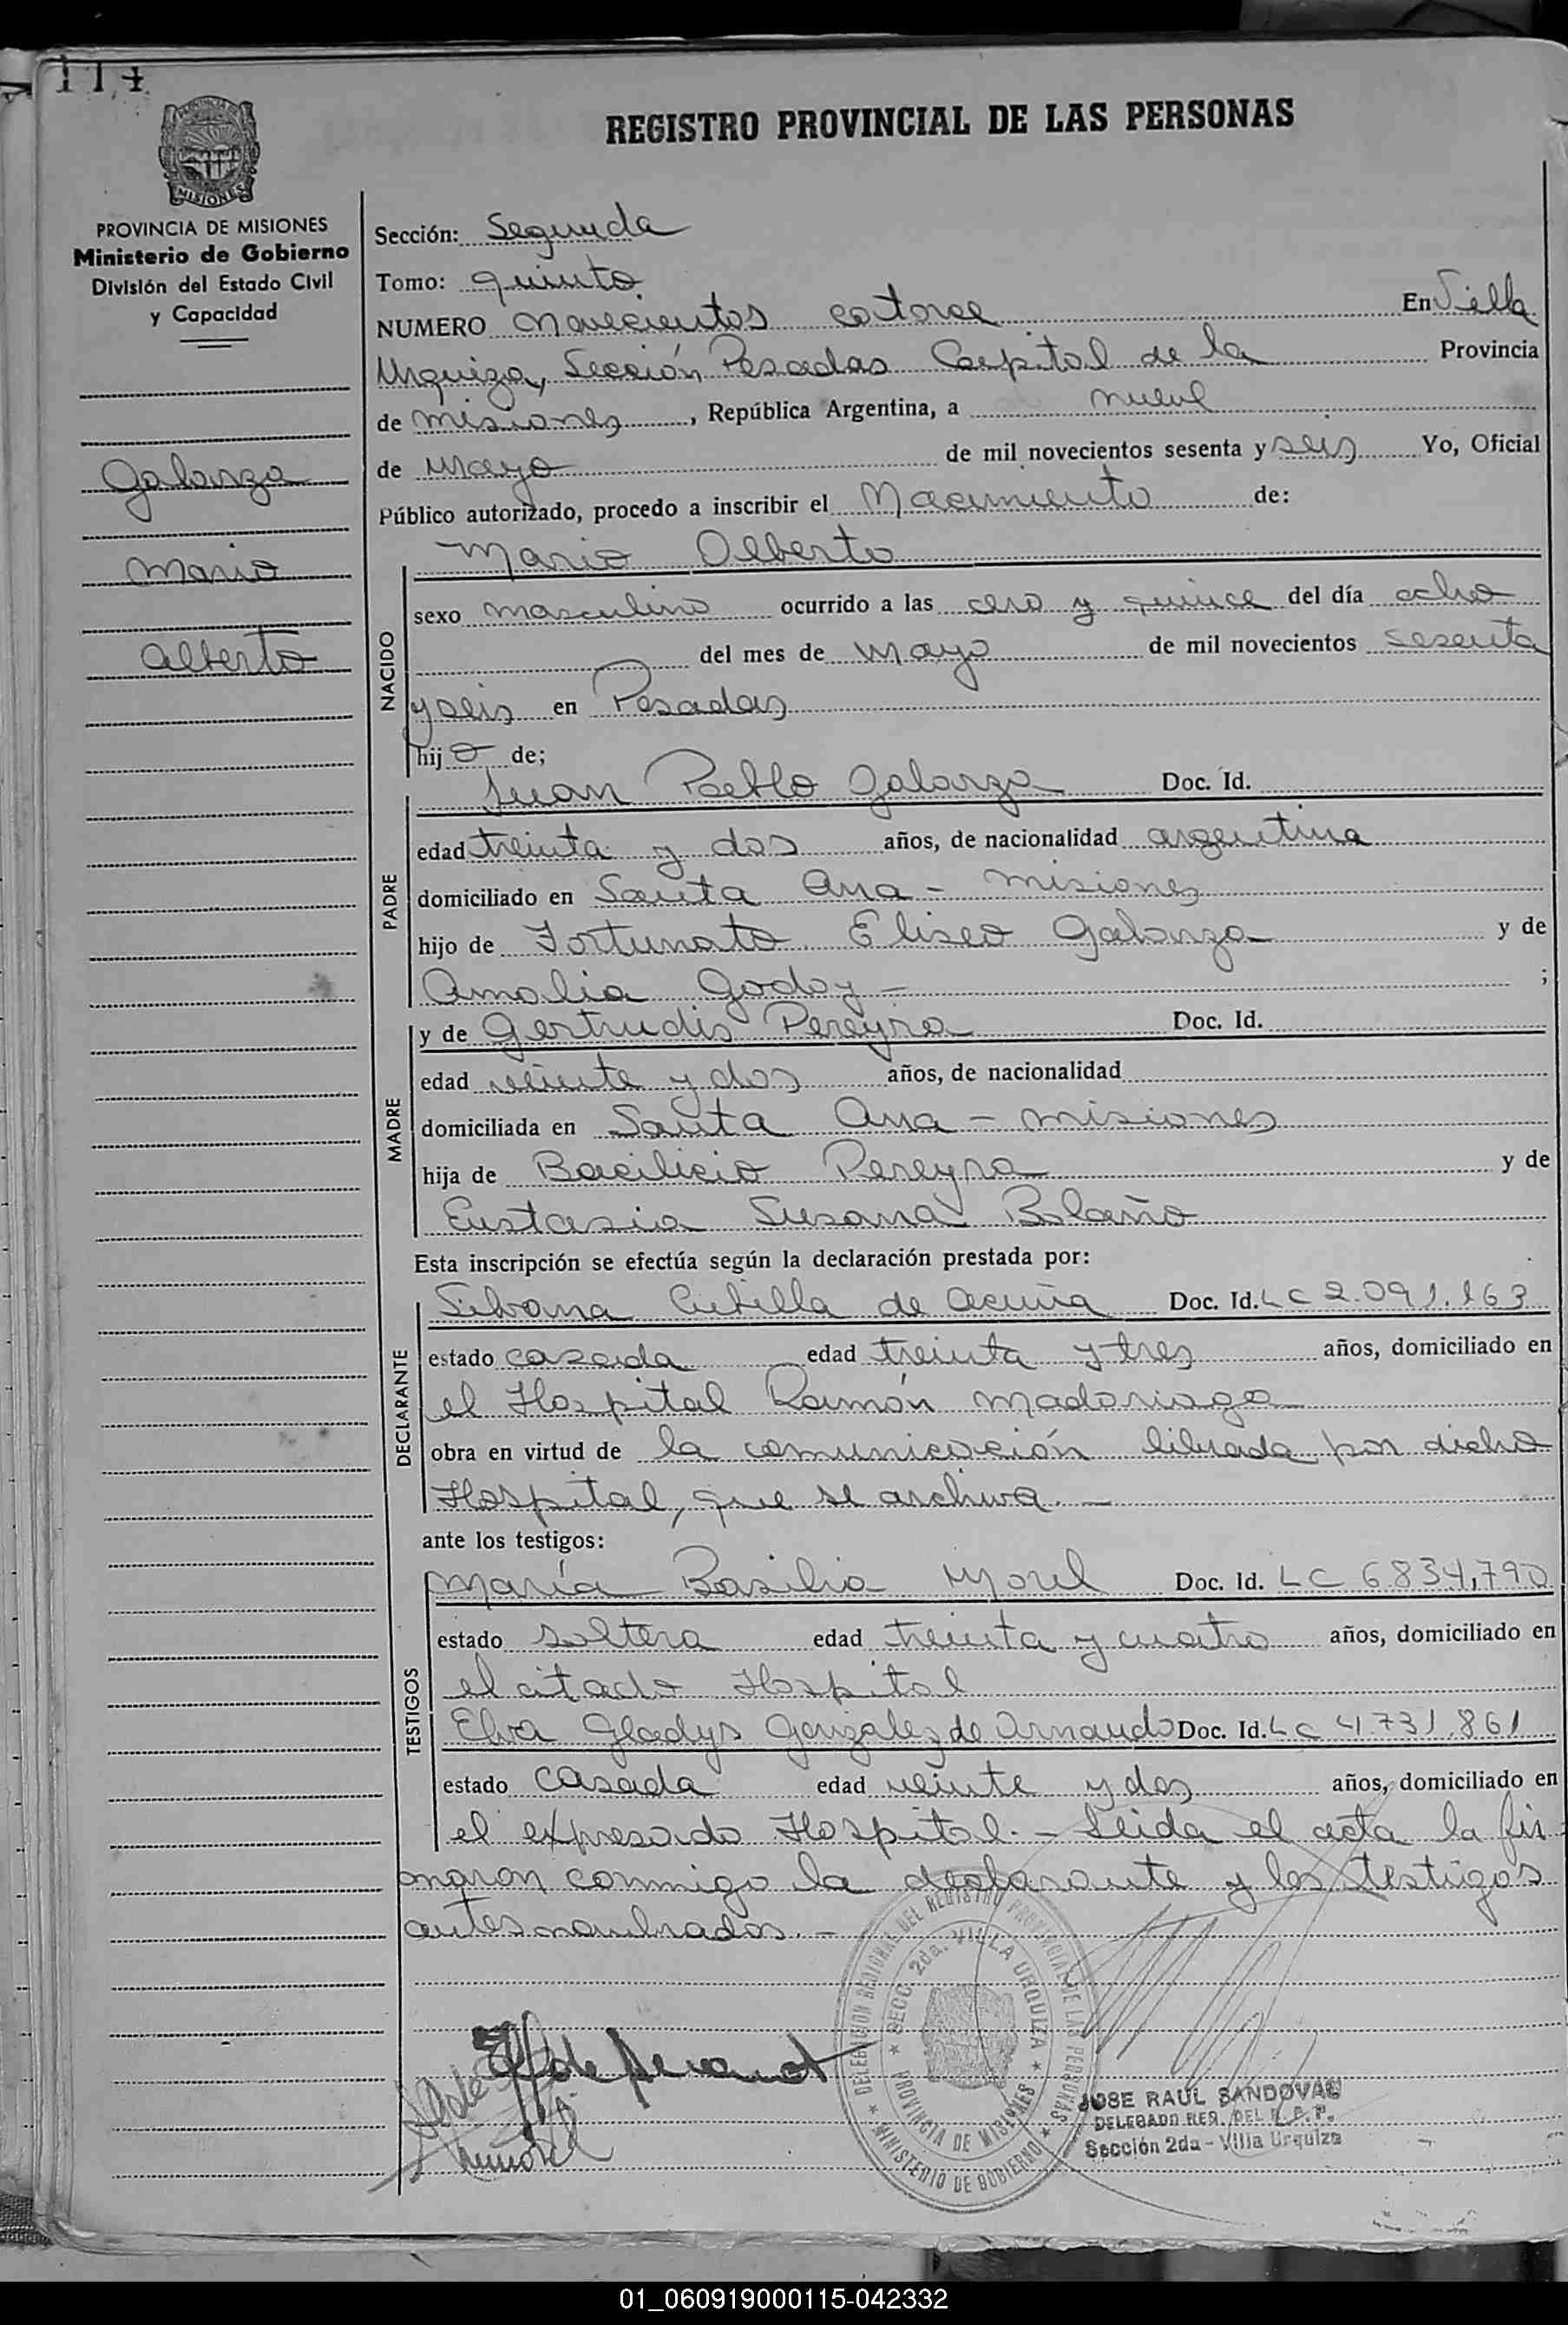 114
REGISTRO PROVINCIAL DE LAS PERSONAS
MISIONES
PROVINCIA DE MISIONES
Ministerio de Gobierno
División del Estado Civil
y Capacidad
Galarza
Mario
Alberto
Sección: Segunda
Tomo: quinto
NUMERO novecientos catorce En Villa
Urquiza, Sección Posadas Capital de la Provincia
de Misiones, República Argentina, a nueve
de Mayo de mil novecientos sesenta y seis Yo, Oficial
Público autorizado, procedo a inscribir el Nacimiento de:
NACIDO
Mario Alberto
sexo masculino ocurrido a las cero y quince del día ocho
del mes de Mayo de mil novecientos sesenta
y seis en Posadas
hijo de;
PADRE
Juan Pablo Galarza Doc. Id.
edad treinta y dos años, de nacionalidad argentina
domiciliado en Santa Ana - Misiones
hijo de Fortunato Eliseo Galarza y de
Amalia Godoy - ;
MADRE
y de Gertrudis Pereyra Doc. Id.
edad veinte y dos años, de nacionalidad
domiciliada en Santa Ana - Misiones
hija de Bacilicio Pereyra y de
Eustasia Susana Bolaño
Esta inscripción se efectúa según la declaración prestada por:
DECLARANTE
Silvana Cubilla de Acuña Doc. Id. LC 2.091.163
estado casada edad treinta y tres años, domiciliado en
el Hospital Ramón Madariaga
obra en virtud de la comunicación librada por dicho
Hospital, que se archiva. -
ante los testigos:
TESTIGOS
María Basilia Morel Doc. Id. LC 6.834,790
estado soltera edad treinta y cuatro años, domiciliado en
el citado Hospital
Elva Gladys Gonzalez de Arnaudo Doc. Id. LC 4.731.861
estado casada edad veinte y dos años, domiciliado en
el expresado Hospital. - Leida el acta la fir-
maron conmigo la declarante y los testigos
antes nombrados. -
DELEGACION REGIONAL DEL REGISTRO PROVINCIAL DE LAS PERSONAS
SECC. 2da. VILLA URQUIZA
PROVINCIA DE MISIONES
MINISTERIO DE GOBIERNO
JOSE RAUL SANDOVAL
DELEGADO REG. DEL R. P. P.
Sección 2da - Villa Urquiza
01_060919000115-042332